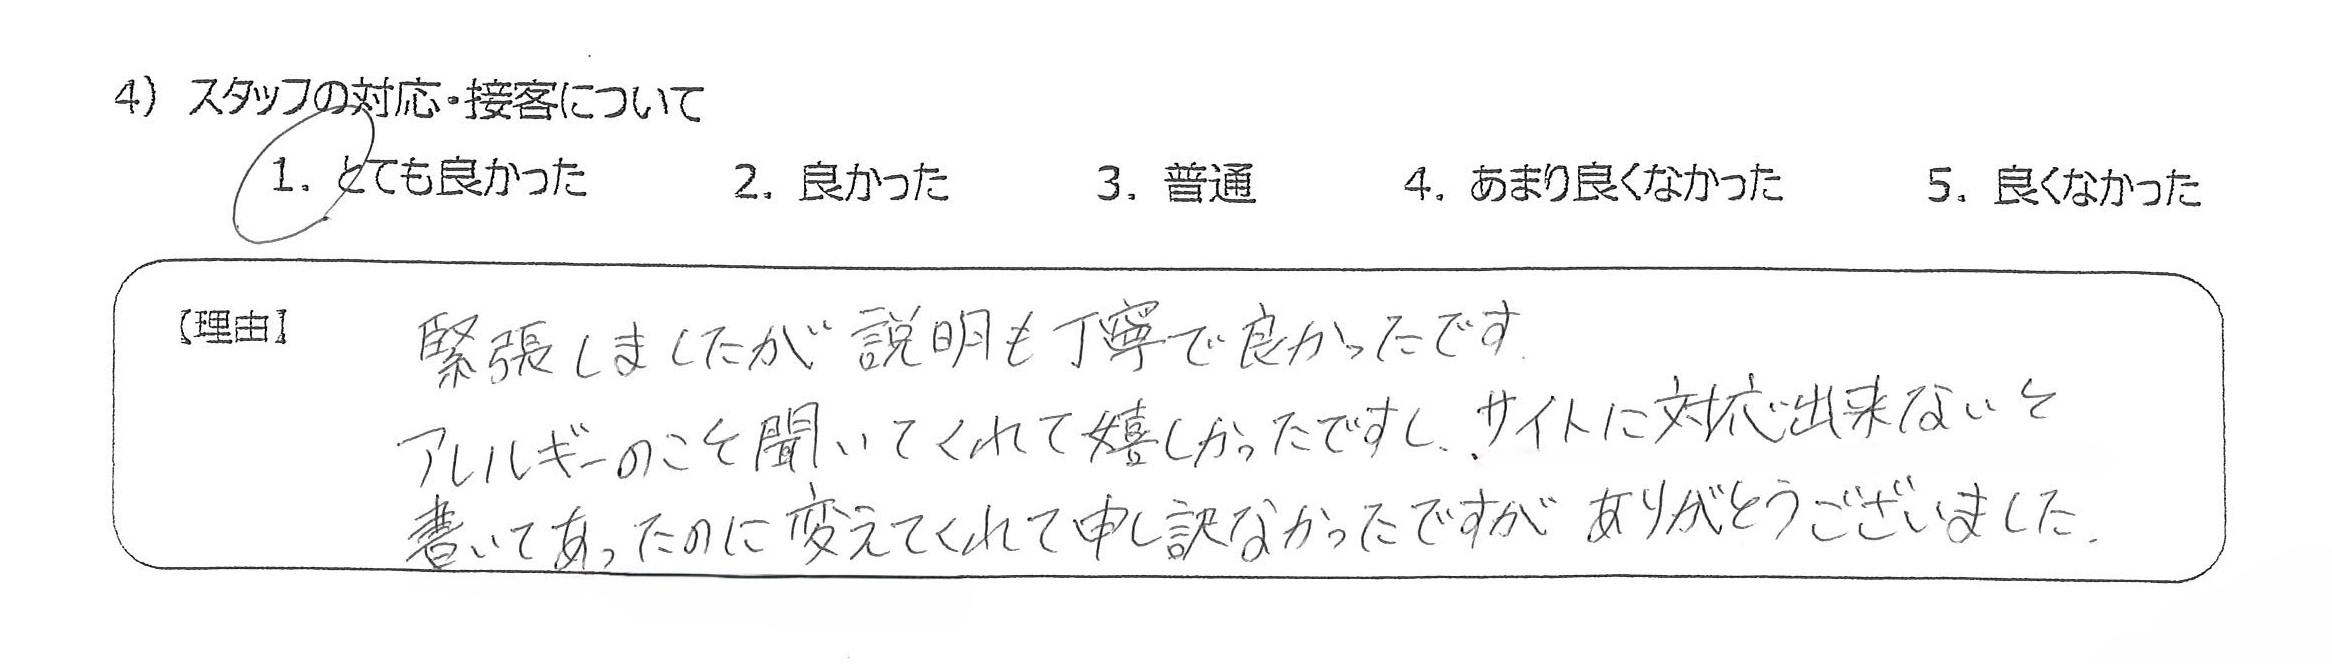 4) スタッフの対応・接客について
1. とても良かった 2. 良かった 3. 普通 4. あまり良くなかった 5. 良くなかった
【理由】 緊張しましたが説明も丁寧で良かったです.
アレルギーのこと聞いてくれて嬉しかったですし、サイトに対応出来ないと
書いてあったのに変えてくれて申し訳なかったですがありがとうございました.